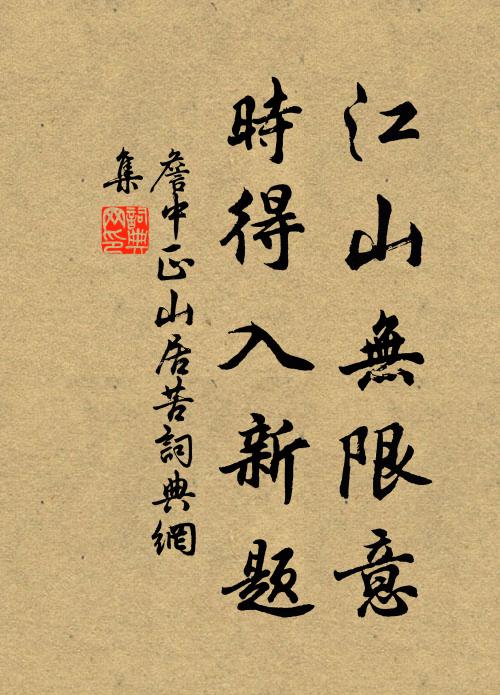 江山無限意
時得入新题
詹中正山居苦詞典網
集
詞典网印